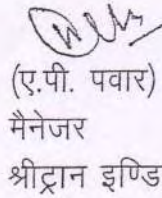 (ए.पी. पवार)
मैनेजर
श्रीट्रान इण्डि